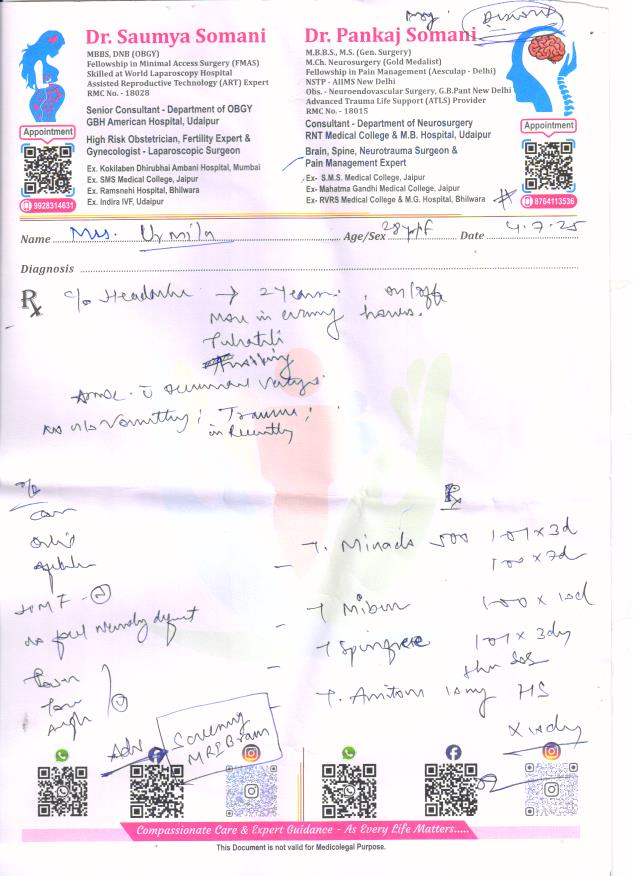 Dr. Saumya Somani
MBBS, DNB (OBGY)
Fellowship in Minimal Access Surgery (FMAS)
Skilled at World Laparoscopy Hospital
Assisted Reproductive Technology (ART) Expert
RMC No. - 18028
Senior Consultant - Department of OBGY
GBH American Hospital, Udaipur
High Risk Obstetrician, Fertility Expert &
Gynecologist - Laparoscopic Surgeon
Ex. Kokilaben Dhirubhai Ambani Hospital, Mumbai
Ex. SMS Medical College, Jaipur
Ex. Ramsnehi Hospital, Bhilwara
Ex. Indira IVF, Udaipur
Appointment
9928314631
Dr. Pankaj Somani
M.B.B.S., M.S. (Gen. Surgery)
M.Ch. Neurosurgery (Gold Medalist)
Fellowship in Pain Management (Aesculap - Delhi)
NSTP - AIIMS New Delhi
Obs. - Neuroendovascular Surgery, G.B.Pant New Delhi
Advanced Trauma Life Support (ATLS) Provider
RMC No. - 18015
Consultant - Department of Neurosurgery
RNT Medical College & M.B. Hospital, Udaipur
Brain, Spine, Neurotrauma Surgeon &
Pain Management Expert
Ex- S.M.S. Medical College, Jaipur
Ex- Mahatma Gandhi Medical College, Jaipur
Ex- RVRS Medical College & M.G. Hospital, Bhilwara
Appointment
8764113536
Name Mrs. Urmila Age/Sex 28y/F Date 4.7.25
Diagnosis
Rx c/o Headache → 2 years. on/off
more in evening hours.
no h/o Vomitting; Trauma;
in Recently
o/e
Rx
HMF - N
T. 500 101 x 3d
100 x 7d
T 100 x 10d
T 101 x 3dy
then SOS
T. 10mg HS
Power
Tone
Adv Screening
MRI Brain
Compassionate Care & Expert Guidance - As Every Life Matters.....
This Document is not valid for Medicolegal Purpose.